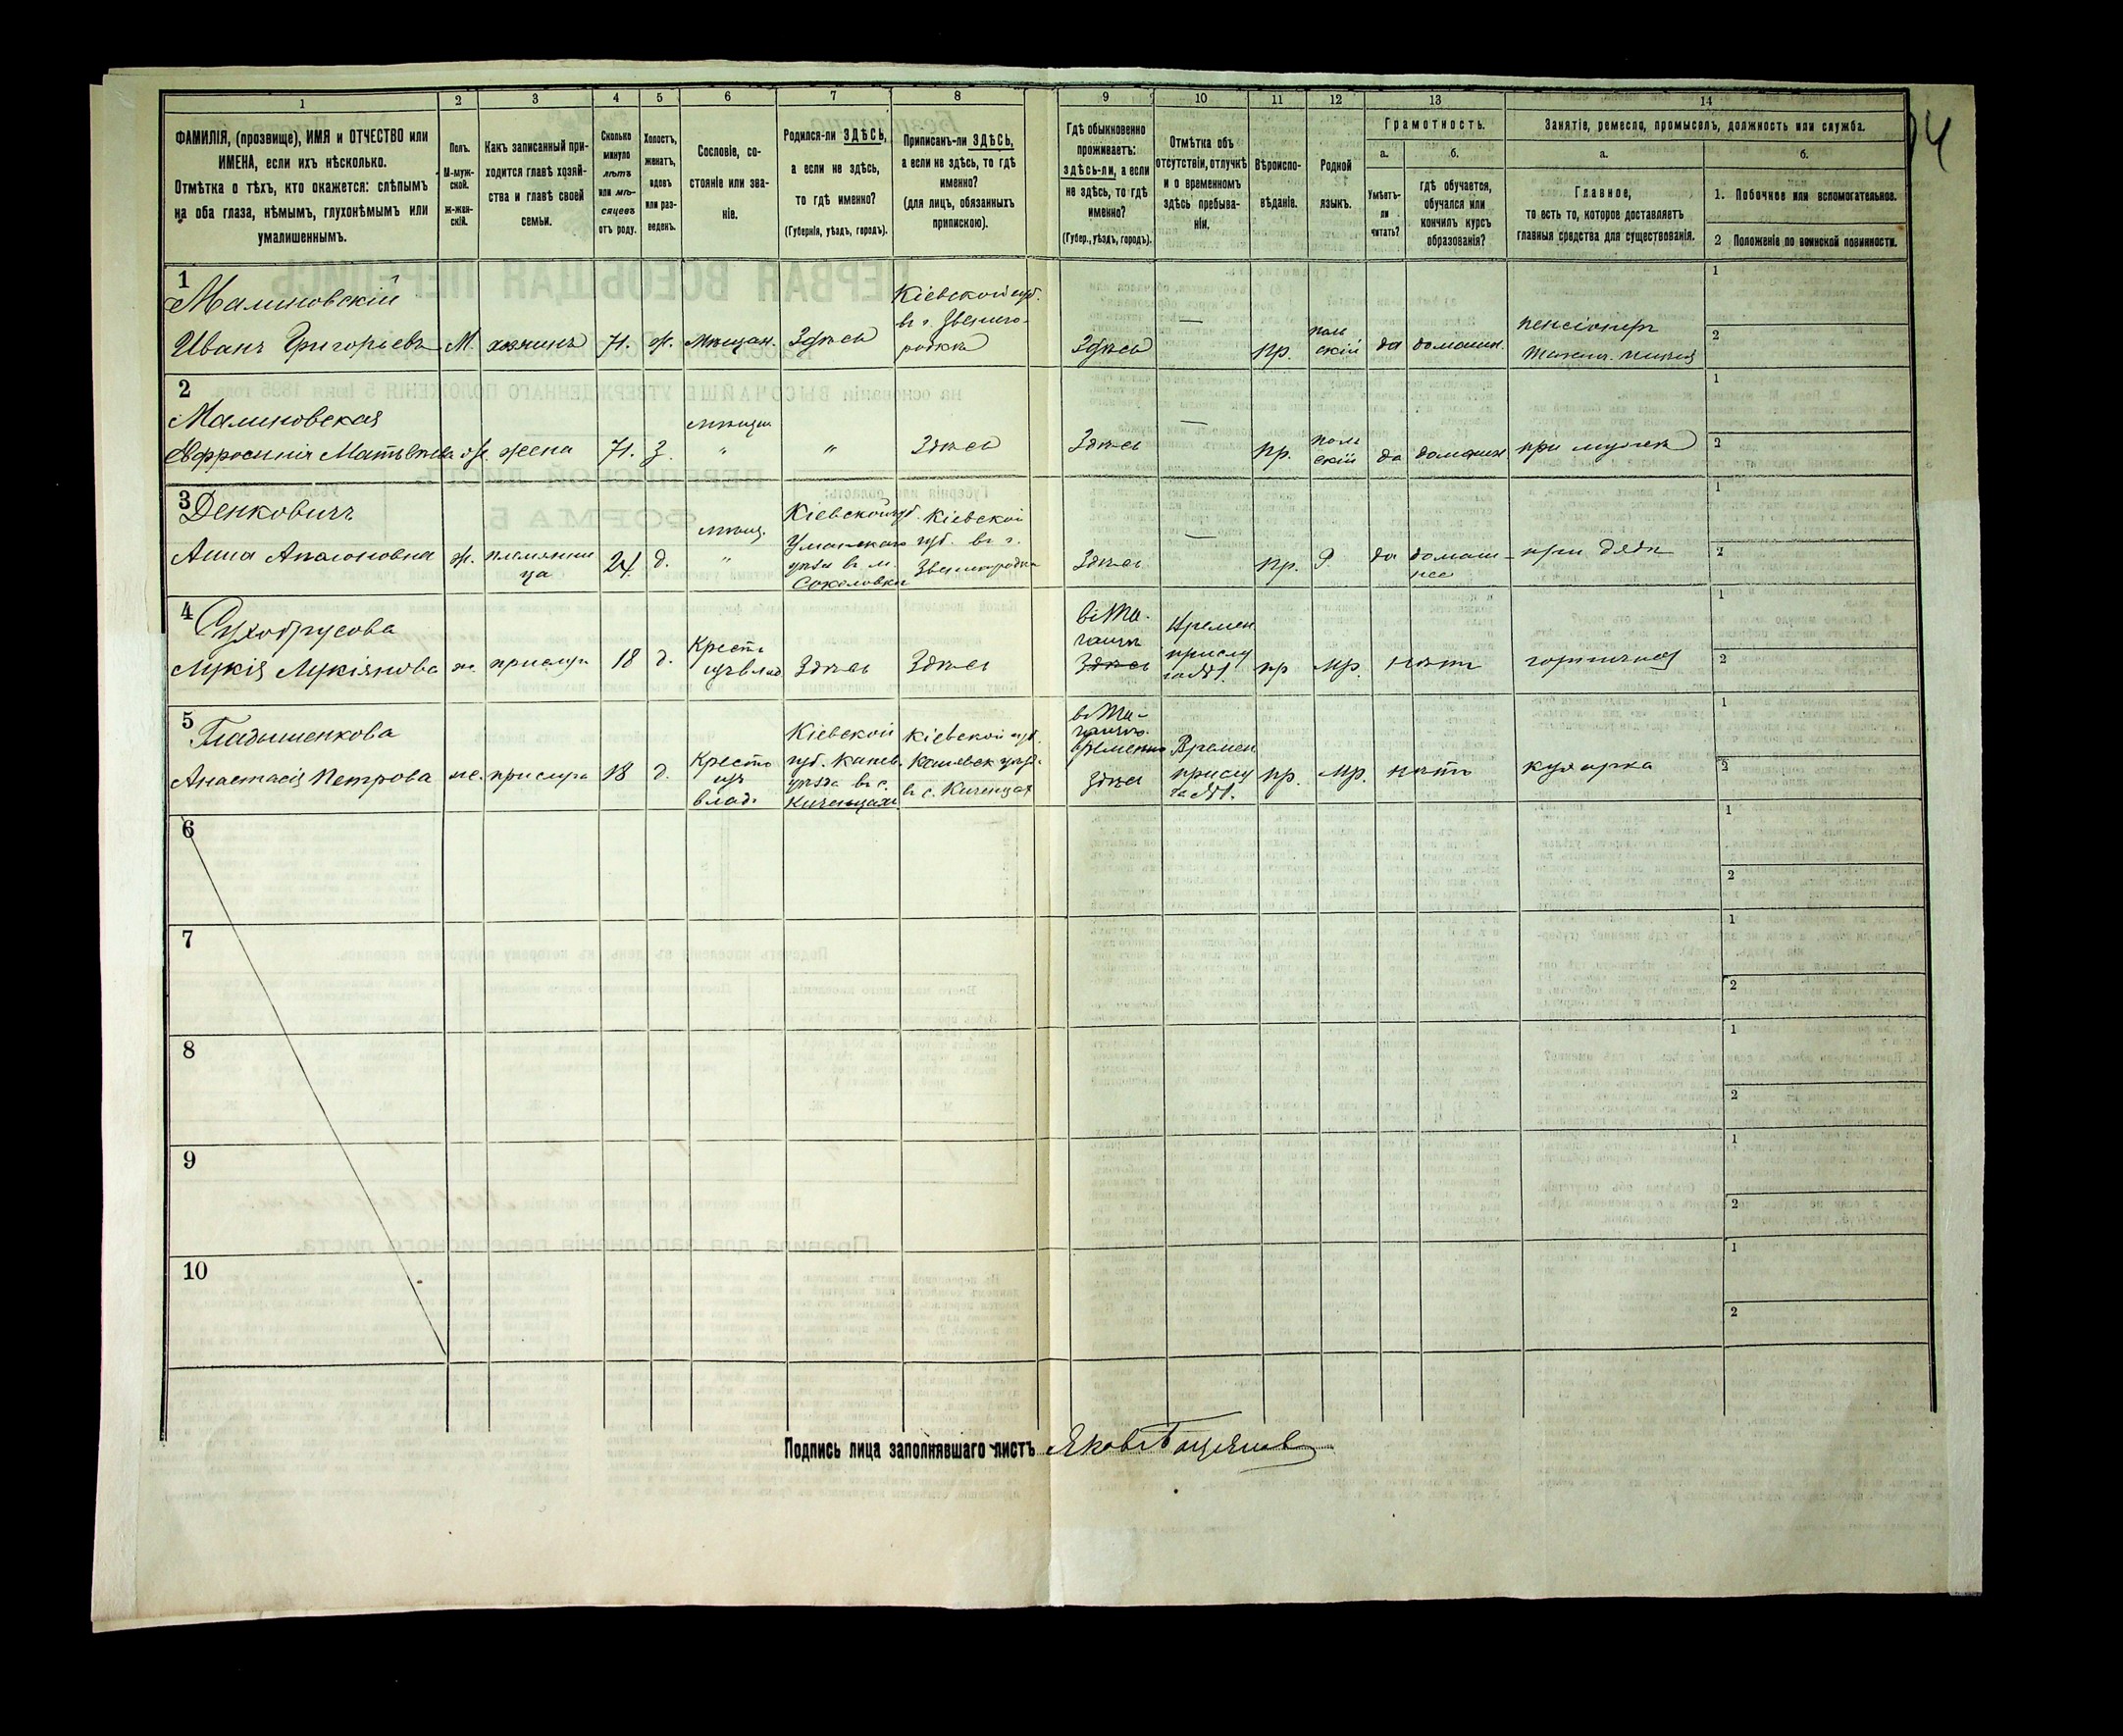 1 2 3 4 5 6 7 8 9 10 11 12 13 14
ФАМИЛІЯ, (прозвище), ИМЯ и ОТЧЕСТВО или
ИМЕНА, если ихъ нѣсколько.
Отмѣтка о тѣхъ, кто окажется: слѣпымъ
на оба глаза, нѣмымъ, глухонѣмымъ или
умалишеннымъ.
Полъ.
М-муж-
ской.
ж-жен-
скій.
Какъ записанный при-
ходится главѣ хозяй-
ства и главѣ своей
семьи.
Сколько
минуло
лѣтъ
или мѣ-
сяцевъ
отъ роду.
Холостъ,
женатъ,
вдовъ
или раз-
веденъ.
Сословіе, со-
стояніе или зва-
ніе.
Родился-ли ЗДѢСЬ,
а если не здѣсь,
то гдѣ именно?
(Губернія, уѣздъ, городъ).
Приписанъ-ли ЗДѢСЬ,
а если не здѣсь, то гдѣ
именно?
(для лицъ, обязанныхъ
припискою).
Гдѣ обыкновенно
проживаетъ:
здѣсь-ли, а если
не здѣсь, то гдѣ
именно?
(Губер., уѣздъ, городъ).
Отмѣтка объ
отсутствіи, отлучкѣ
и о временномъ
здѣсь пребыва-
ніи.
Вѣроиспо-
вѣданіе.
Родной
языкъ.
Грамотность.
а.
Умѣетъ-
ли
читать?
б.
гдѣ обучается,
обучался или
кончилъ курсъ
образованія?
Занятіе, ремесло, промыселъ, должность или служба.
а.
Главное,
то есть то, которое доставляетъ
главныя средства для существованія.
б.
1. Побочное или вспомогательное.
2 Положеніе по воинской повинности.
1
Малиновскій
Иванъ Григорьевъ
М.
хозяинъ
71.
ж.
Мѣщан.
Здѣсь
Кіевской губ.
въ г. Звениго-
родкѣ
Здѣсь
—
пр.
поль
скій
да
домашн.
пенсіонеръ
1
2
2
Малиновская
Ефросинія Матвѣева
ж.
жена
71.
з.
мѣщан
"
"
Здѣсь
Здѣсь
—
пр.
поль
скій
да
домашн
при мужѣ
1
2
3
Денковичъ
Анна Аполоновна
ж.
племянни
ца
24
д.
мѣщ.
"
Кіевской губ.
Уманскаго
уѣзда въ м.
Соколовки
Кіевской
губ. въ г.
Звенигородкѣ
Здѣсь
—
пр.
да
домаш-
нее
при дядѣ
1
2
4
Сухобрусова
Лукія Лукіянова
ж.
прислуга
18
д.
Крестъ
изъ влад
Здѣсь
Здѣсь
Здѣсь
Времен
прислу
га
пр
мр.
нѣтъ
горничная
1
2
5
Гладышенкова
Анастасія Петрова
ж.
прислуга
18
д.
Крестъ
изъ
влад.
Кіевской
губ. Канев.
уѣзда въ с.
Киченцахъ
Кіевской губ.
Каневск уѣзд.
въ с. Киченцах
временно
здѣсь
Времен
прислу
га
пр.
мр.
нѣтъ
кухарка
1
2
6
1
2
7
1
2
8
1
2
9
1
2
10
1
2
Подпись лица заполнявшаго листъ